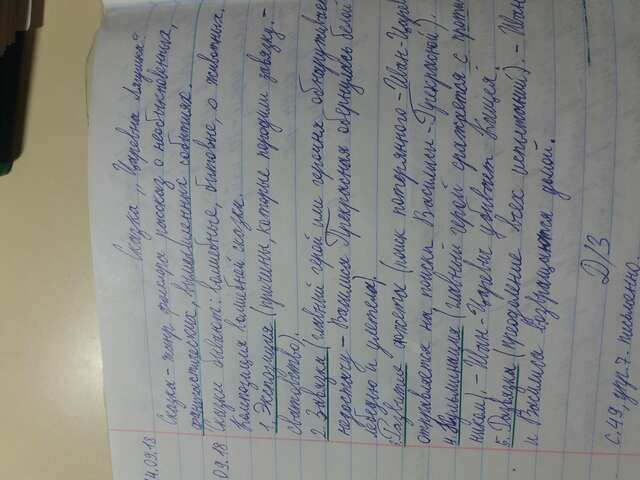 Сказка „Царевна Лягушка“
4.09.18
Сказка – жанр фольклора рассказ о необыкновенных,
фантастических, вымышленных событиях.
09.18 Сказки бывают: волшебные, бытовые, о животных.
Композиция волшебной сказки.
1. Экспозиция (причины, которые породили завязку. –
сватовство).
2. Завязка (главный герой или героиня обнаруживае
недостачу – Василиса Прекрасная обернулась белой
лебедью и улетела).
3. Развитие сюжета (поиск потерянного – Иван-Царев
отправляется на поиски Василисы-Прекрасной).
4. Кульминация (главный герой сражается с проти
ником). – Иван-Царевич убивает Кощея.
5. Развязка (преодоление всех испытаний). – Иван
и Василиса возвращаются домой.
Д/З
с. 49, упр. 7. письменно.